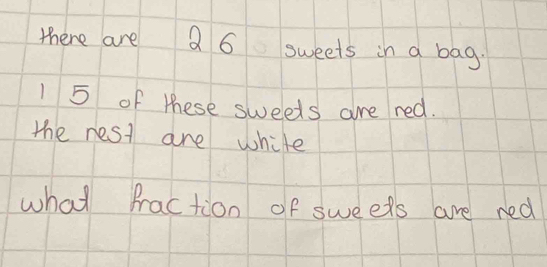 there are 26 sweets in a bag.
15 of these sweets are red.
the rest are white
what fraction of sweets are red